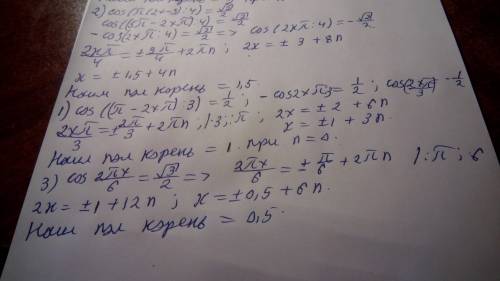 2) cos(π(2x-9):4) = √2/2
cos((5π - 2xπ):4) = √2/2
-cos(2xπ:4) = √2/2 => cos(2xπ:4) = -√2/2
2xπ/4 = ±3π/4 + 2πn ; 2x = ±3 + 8n
x = ±1,5 + 4n
Наим пол корень = 1,5.
1) cos((π - 2xπ):3) = 1/2 ; -cos2xπ3 = 1/2 ; cos(2xπ/3) - 1/2
2xπ/3 = ±2π/3 + 2πn, |·3; :π ; 2x = ±2 + 6n
x = ±1 + 3n.
Наим пол корень = 1 при n = 0.
3) cos 2πx/6 = √3/2 => 2πx/6 = ±π/6 + 2πn |:π; 6
2x = ±1 + 12n ; x = ±0,5 + 6n
Наим пол корень = 0,5.